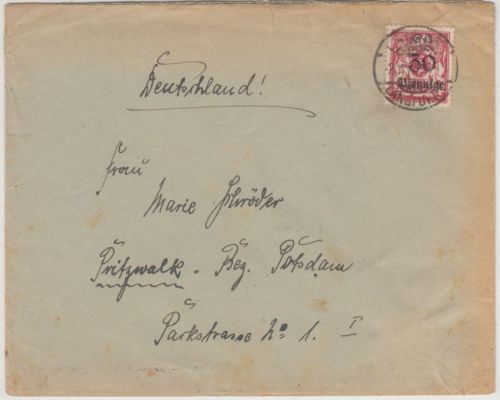 30
Pfennige
Deutschland!
Frau
Marie Schröder
Pritzwalk. Bez. Potsdam
Parkstrasse No 1. I